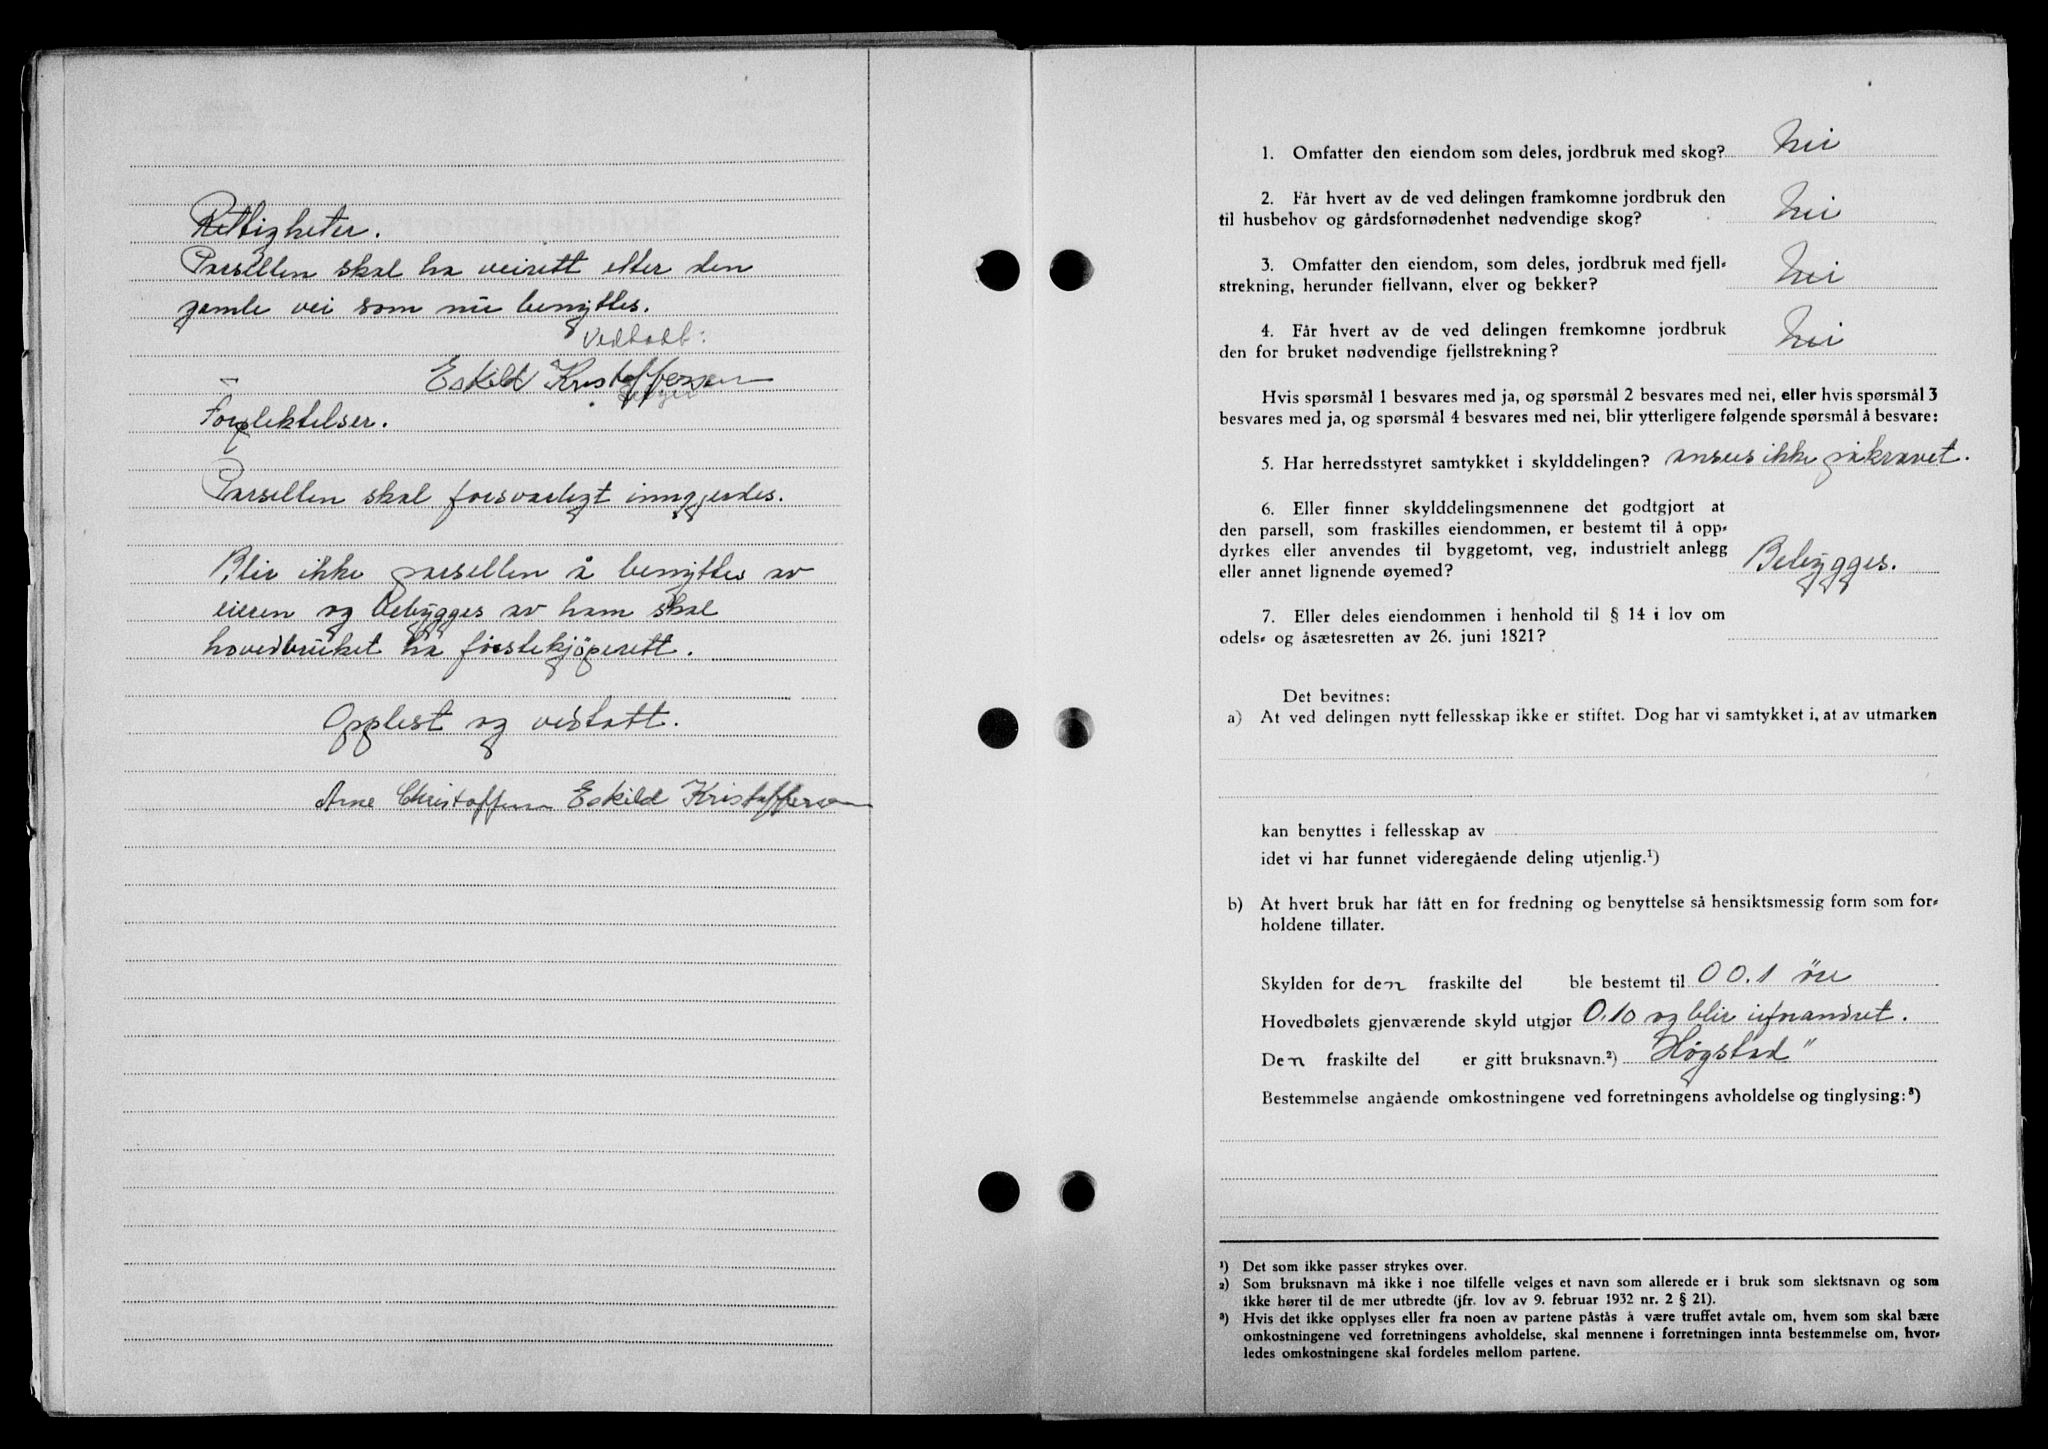 Rettigheter.
Parsellen skal ha veirett etter den
gamle vei som nu benyttes.
Vedtatt:
Eskild Kristoffersen
selger
Forplektelser.
Parsellen skal forsvarligt inngjerdes.
Blir ikke parsellen å benyttes av
eieren og bebygges av ham skal
hovedbruket ha førstekjøperett.
Opplest og vedtatt.
Arne Christoffersen Eskild Kristoffersen
1. Omfatter den eiendom som deles, jordbruk med skog? Nei
2. Får hvert av de ved delingen framkomne jordbruk den
til husbehov og gårdsfornødenhet nødvendige skog? Nei
3. Omfatter den eiendom, som deles, jordbruk med fjell-
strekning, herunder fiellvann, elver og bekker? Nei
4. Får hvert av de ved delingen fremkomne jordbruk
den for bruket nødvendige fjellstrekning? Nei
Hvis spørsmål 1 besvares med ja, og spørsmål 2 besvares med nei, eller hvis spørsmål 3
besvares med ja, og spørsmål 4 besvares med nei, blir ytterligere følgende spørsmål å besvare:
5. Har herredsstyret samtykket i skylddelingen? ansees ikke påkrævet.
6. Eller finner skylddelingsmennene det godtgjort at
den parsell, som fraskilles eiendommen, er bestemt til å opp-
dyrkes eller anvendes til byggetomt, veg, industrielt anlegg
eller annet lignende øyemed? Bebygges.
7. Eller deles eiendommen i henhold til § 14 i lov om
odels- og åsætesretten av 26. juni 1821?
Det bevitnes:
a) At ved delingen nytt fellesskap ikke er stiftet. Dog har vi samtykket i, at av utmarken
kan benyttes i fellesskap av
idet vi har funnet videregående deling utjenlig.¹)
b) At hvert bruk har fått en for fredning og benyttelse så hensiktsmessig form som for-
holdene tillater.
Skylden for den fraskilte del ble bestemt til 00.1 øre
Hovedbølets gjenværende skyld utgjør 0.10 og blir uforandret.
Den fraskilte del er gitt bruksnavn.²) Høgstad"
Bestemmelse angående omkostningene ved forretningens avholdelse og tinglysing:³)
¹) Det som ikke passer strykes over.
²) Som bruksnavn må ikke i noe tilfelle velges et navn som allerede er i bruk som slektsnavn og som
ikke hører til de mer utbredte (jfr. lov av 9. februar 1932 nr. 2 § 21).
³) Hvis det ikke opplyses eller fra noen av partene påstås å være truffet avtale om, hvem som skal bære
omkostningene ved forretningens avholdelse, skal mennene i forretningen innta bestemmelse om, hvor-
ledes omkostningene skal fordeles mellom partene.